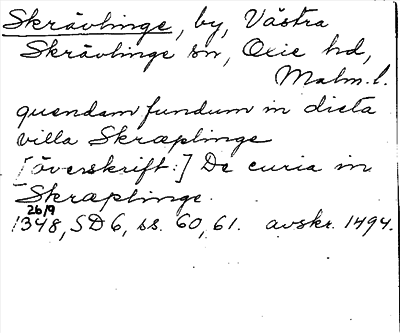 Skrävlinge, by, Västra
Skrävlinge sn, Oxie hd,
Malm. l.
quendam fundum in dicta
villa Skræplinge
[överskrift:] De curia in
Skræplinge.
26/9
1348, SD 6, ss. 60, 61. avskr. 1494.